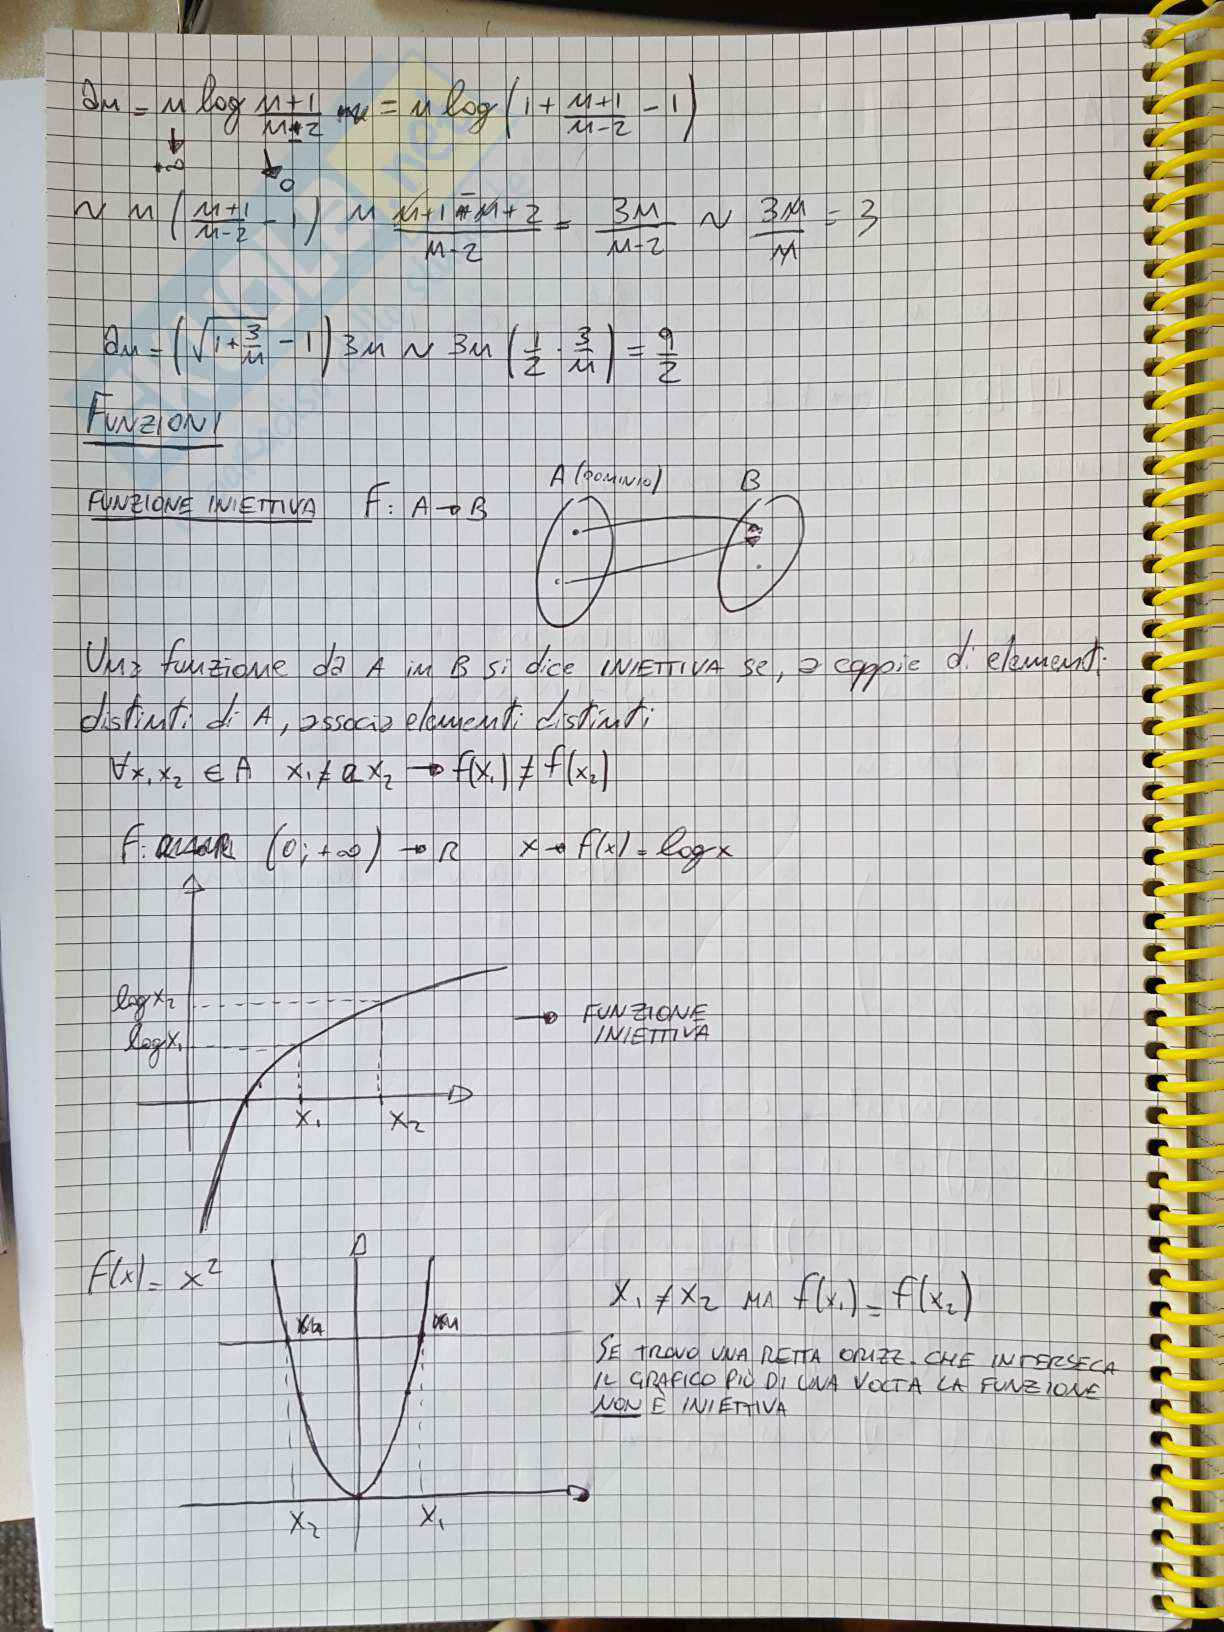 an = n log n+1/n-2 = n log (1 + n+1/n-2 - 1)
+∞ 0
~ n (n+1/n-2 - 1) n n+1-n+2/n-2 = 3n/n-2 ~ 3n/n = 3
an = (√1+3/n - 1) 3n ~ 3n (1/2 · 3/n) = 9/2
FUNZIONI
A (DOMINIO) B
FUNZIONE INIETTIVA F: A → B
Una funzione da A in B si dice INIETTIVA se, a coppie di elementi
distinti di A, associa elementi distinti
∀x₁x₂ ∈ A x₁ ≠ a x₂ → f(x₁) ≠ f(x₂)
F: (0; +∞) → R x → f(x) = log x
log x₂
log x₁
→ FUNZIONE
INIETTIVA
x₁ x₂
f(x) = x²
x₁ ≠ x₂ MA f(x₁) = f(x₂)
SE TROVO UNA RETTA ORIZZ. CHE INTERSECA
IL GRAFICO PIÙ DI UNA VOLTA LA FUNZIONE
NON È INIETTIVA
x₂ x₁